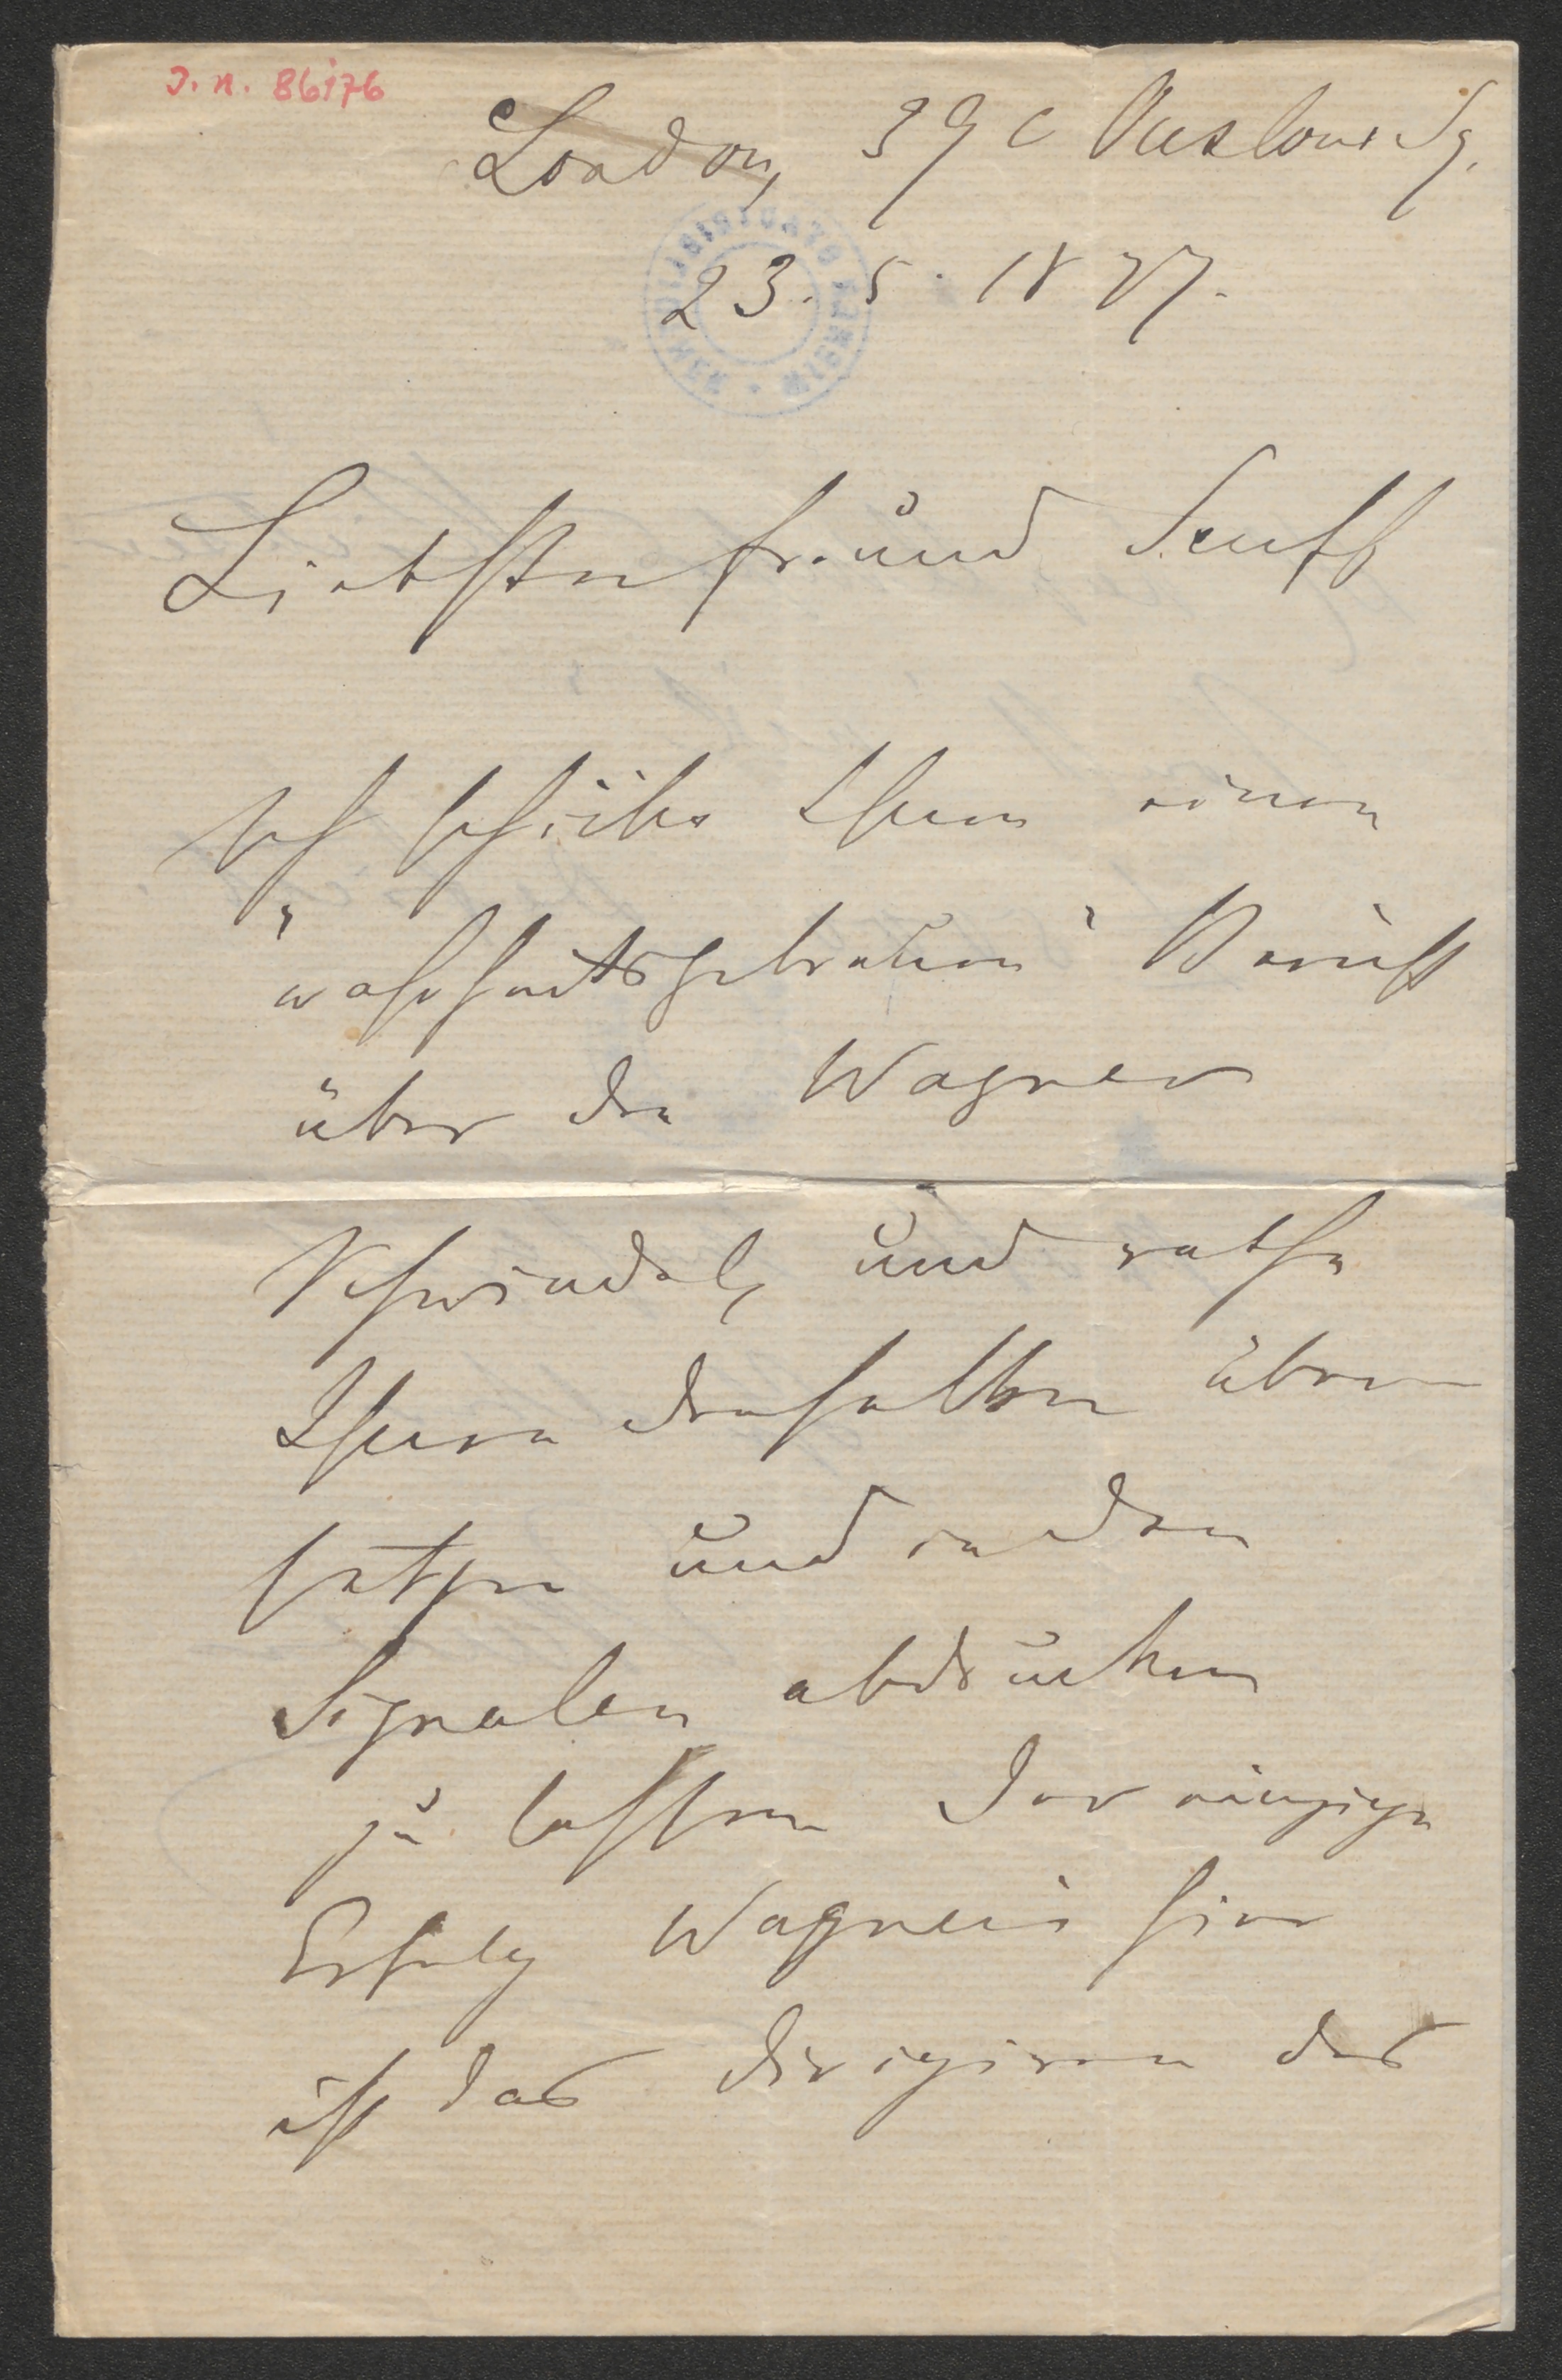 J. N. 86176
London, 39 C Onslow Sq.
23. 5. 1877.
Liebster Freund Senff
Ich schicke Ihnen einen
"wahrheitsgetreuen" Bericht
über den Wagner
Schwindel, und rathe
Ihnen denselben über
setzen und in den
Signalen abdrucken
zu lassen Der einzige
Erfolg Wagners hier
ist das Dirigiren des